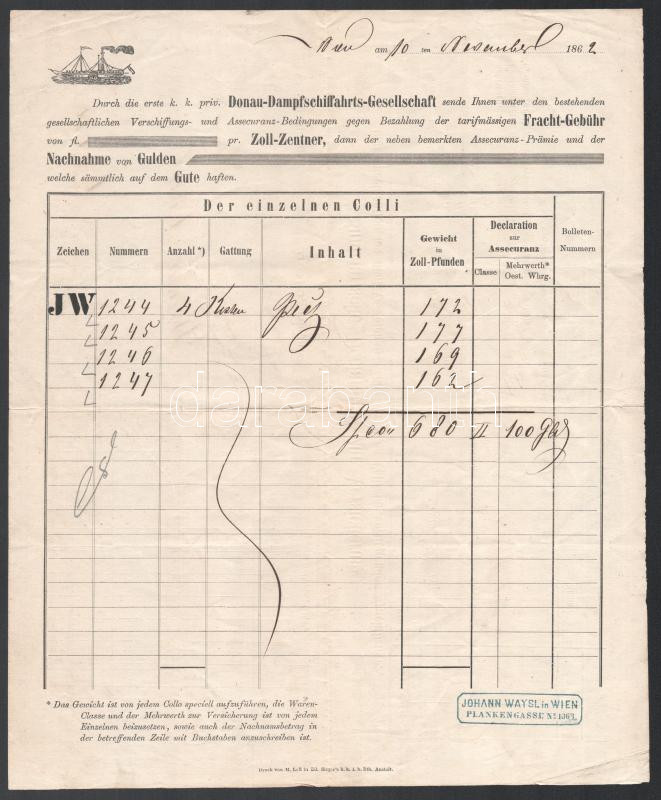 Wien am 10 ten November 1862
Durch die erste k. k. priv. Donau-Dampfschiffahrts-Gesellschaft sende Ihnen unter den bestehenden
gesellschaftlichen Verschiffungs- und Assecuranz-Bedingungen gegen Bezahlung der tarifmässigen Fracht-Gebühr
von fl. pr. Zoll-Zentner, dann der neben bemerkten Assecuranz-Prämie und der
Nachnahme von Gulden
welche sämmtlich auf dem Gute haften.
Der einzelnen Colli
Zeichen Nummern Anzahl *) Gattung Inhalt Gewicht in Zoll-Pfunden Declaration zur Assecuranz Classe Mehrwerth* Oest. Whrg. Bolleten-Nummern
JW 1244 4 Kisten 172
1245 177
1246 169
1247 162
680 II 100
darabanth
* Das Gewicht ist von jedem Collo speciell aufzuführen, die Waren-
Classe und der Mehrwerth zur Versicherung ist von jedem
Einzelnen beizusetzen, sowie auch der Nachnamsbetrag in
der betreffenden Zeile mit Buchstaben anzuschreiben ist.
JOHANN WAYSL in WIEN
PLANKENGASSE No. 1063.
Druck von M. Lell in